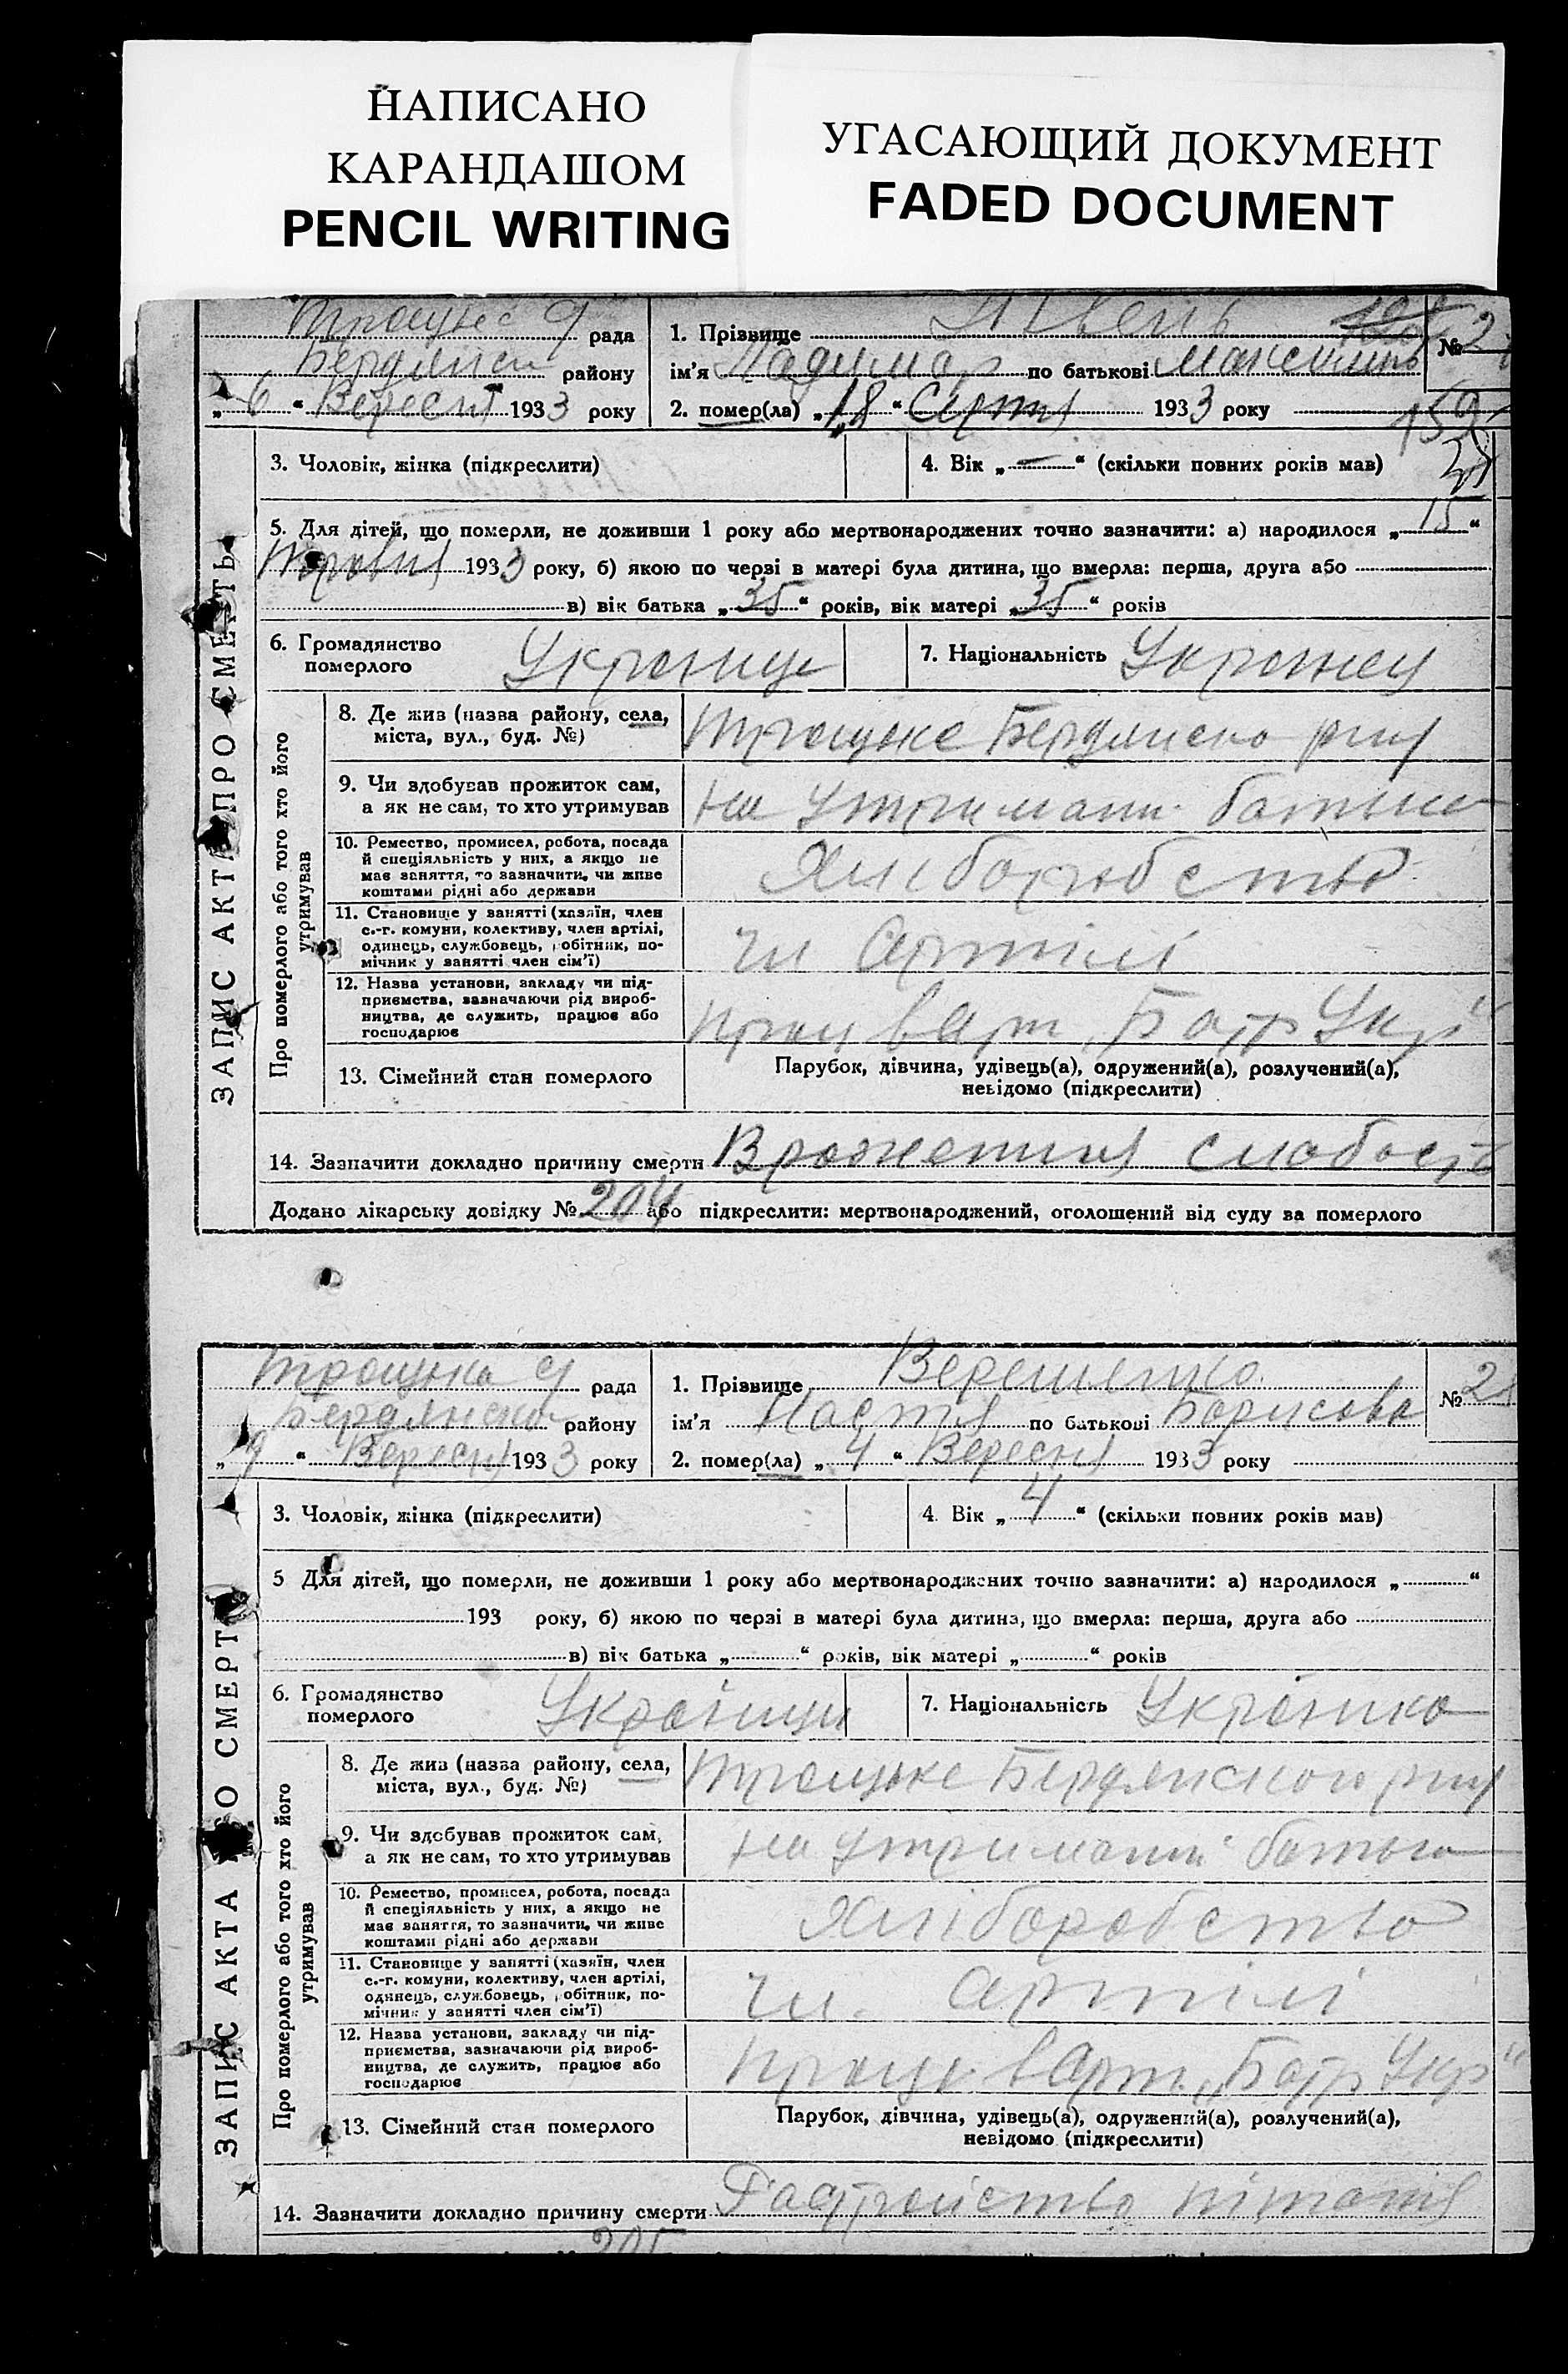 НАПИСАНО
КАРАНДАШОМ
PENCIL WRITING
УГАСАЮЩИЙ ДОКУМЕНТ
FADED DOCUMENT
ЗАПИС АКТА ПРО СМЕРТЬ
рада
Бердянськ району
„6“ Вересня 1933 року
1. Прізвище
ім'я по батькові
№ 2
2. помер(ла) „18“ Серпня 1933 року
159
3. Чоловік, жінка (підкреслити)
4. Вік „—“ (скільки повних років мав)
5. Для дітей, що померли, не доживши 1 року або мертвонароджених точно зазначити: а) народилося „15“
Травня 1933 року, б) якою по черзі в матері була дитина, що вмерла: перша, друга або
в) вік батька „35“ років, вік матері „35“ років
6. Громадянство
померлого
7. Національність Украинец
Про померлого або того хто його
утримував
8. Де жив (назва району, села,
міста, вул., буд. №)
Троцьке Бердянсько р-ну
9. Чи здобував прожиток сам,
а як не сам, то хто утримував
на утримані батька
10. Ремество, промисел, робота, посада
й спеціяльність у них, а якщо не
має заняття, то зазначити, чи живе
коштами рідні або держави
Хліборобство
11. Становище у занятті (хазяїн, член
с.-г. комуни, колективу, член артілі,
одинець, службовець, робітник, по-
мічник у занятті член сім'ї)
чл Артілі
12. Назва установи, закладу чи під-
приємства, зазначаючи рід вироб-
ництва, де служить, працює або
господарює
прац в Арт „Батр Укр“
13. Сімейний стан померлого
Парубок, дівчина, удівець(а), одружений(а), розлучений(а),
невідомо (підкреслити)
14. Зазначити докладно причину смерти Вроженная слабость
Додано лікарську довідку № 204 або підкреслити: мертвонароджений, оголошений від суду за померлого
ЗАПИС АКТА ПРО СМЕРТЬ
Троцька рада
Бердянсько району
„9“ Вересня 1933 року
1. Прізвище Верещенко
ім'я Настя по батькові Борисова
№ 2
2. помер(ла) „4“ Вересня 1933 року
3. Чоловік, жінка (підкреслити)
4. Вік „4“ (скільки повних років мав)
5 Для дітей, що померли, не доживши 1 року або мертвонароджених точно зазначити: а) народилося „ “
193 року, б) якою по черзі в матері була дитина, що вмерла: перша, друга або
в) вік батька „ “ років, вік матері „ “ років
6. Громадянство
померлого
7. Національність Українка
Про померлого або того хто його
утримував
8. Де жив (назва району, села,
міста, вул., буд. №)
Троцьке Бердянського р-ну
9. Чи здобував прожиток сам,
а як не сам, то хто утримував
на утриманні батька
10. Ремество, промисел, робота, посада
й спеціяльність у них, а якщо не
має заняття, то зазначити, чи живе
коштами рідні або держави
Хліборобство
11. Становище у занятті (хазяїн, член
с.-г. комуни, колективу, член артілі,
одинець, службовець, робітник, по-
мічник у занятті член сім'ї)
чл. артілі
12. Назва установи, закладу чи під-
приємства, зазначаючи рід вироб-
ництва, де служить, працює або
господарює
прац. в Арт. „Батр Укр“
13. Сімейний стан померлого
Парубок, дівчина, удівець(а), одружений(а), розлучений(а),
невідомо (підкреслити)
14. Зазначити докладно причину смерти Растройство пітанія
205